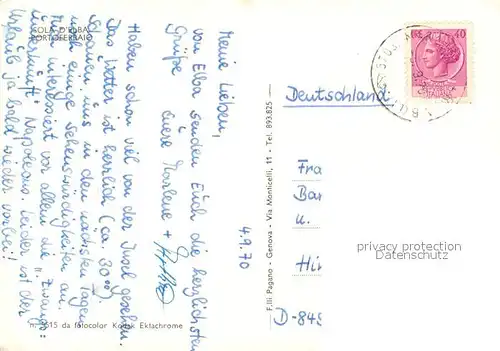 ISOLA D'ELBA
PORTOFERRAIO
4.9.70
Meine Lieben,
von Elba senden Euch die herzlichsten
Grüße
Eure Marlene +
Haben schon viel von der Insel gesehen.
Das Wetter ist herrlich (ca. 30°)
Schauen uns in den nächsten Tagen
noch einige Sehenswürdigkeiten an.
Mich interessiert vor allem die "Zwangs-
unterkunft" Napoleons. Leider ist der
Urlaub ja bald wieder vorbei!
n. 1515 da fotocolor Kodak Ektachrome
F.lli Pagano - Genova - Via Monticelli, 11 - Tel. 893.825
LIRE 40
Deutschland
Fra
Bar
u.
Hi
D-845
privacy protection
Datenschutz